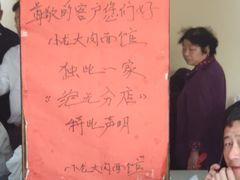 尊敬的客户您们好
小龙大肉面馆
独此一家
“绝无分店”
特此声明
小龙大肉面馆